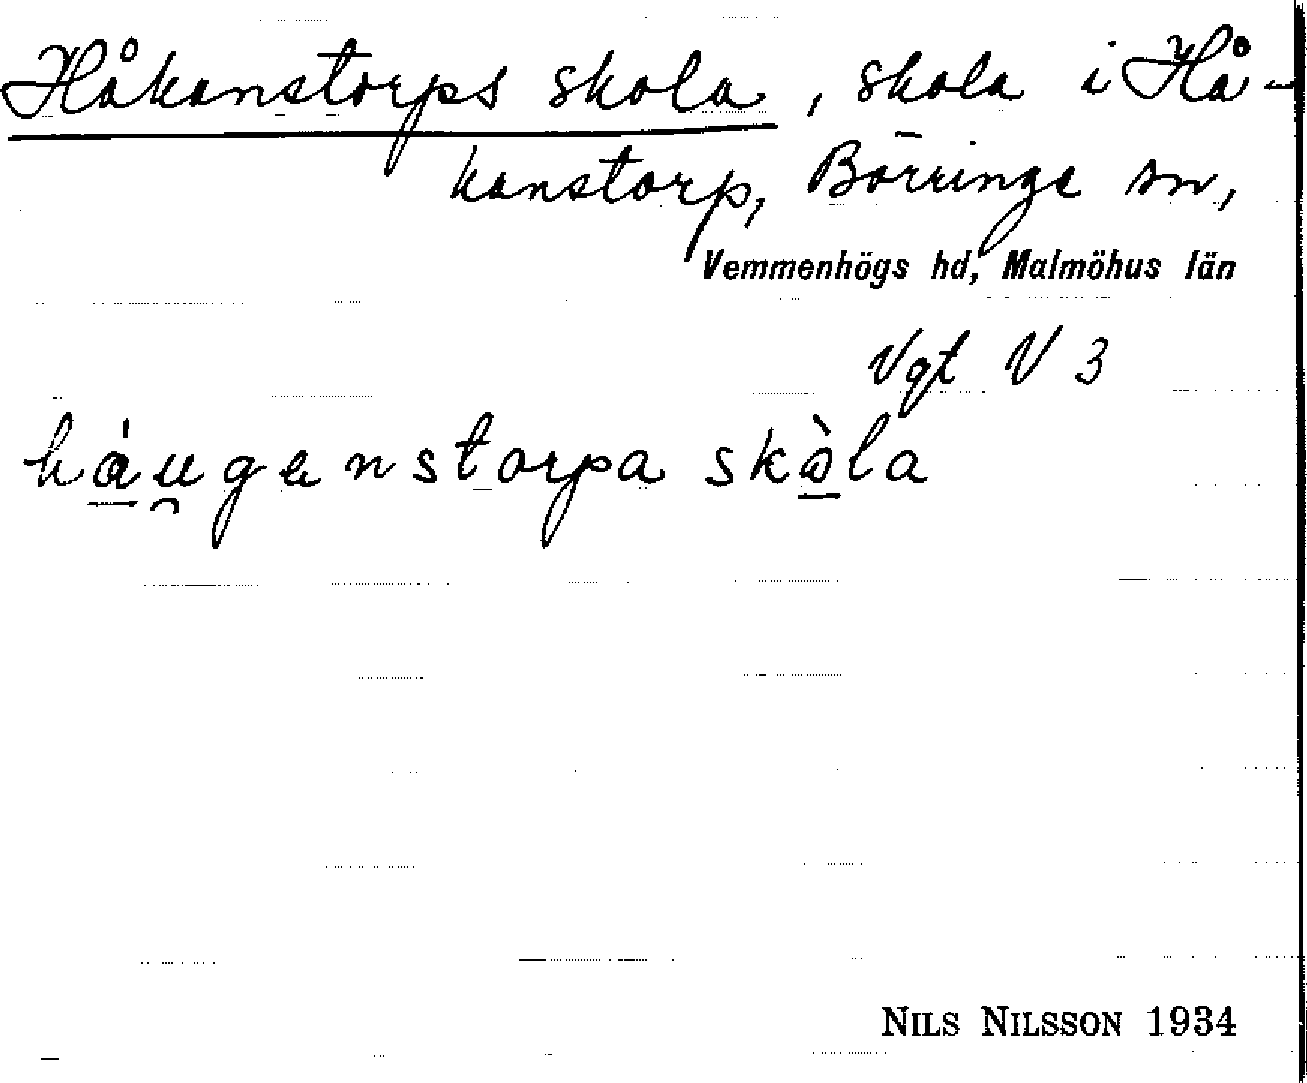 Håkanstorps skola, skola i Hå-
kanstorp, Börringe sn,
Vemmenhögs hd, Malmöhus län
Vgt V 3
háu̯genstorpa skòla
NILS NILSSON 1934